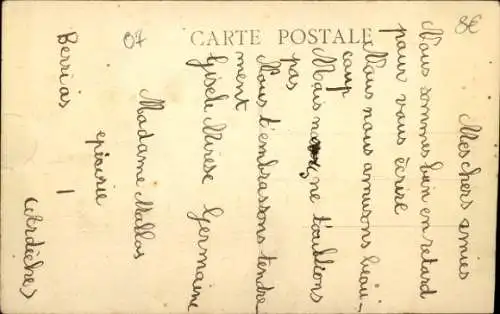 CARTE POSTALE
8€
07
Mes chers amies
Nous sommes bien en retard
pour vous écrire
Nous nous amusons beau-
coup
Mais nous ne t'oublions
pas
Nous t'embrassons tendre-
ment
Gisèle Germaine
Madame Mallas
epicerie
Berrias
(Ardèche)